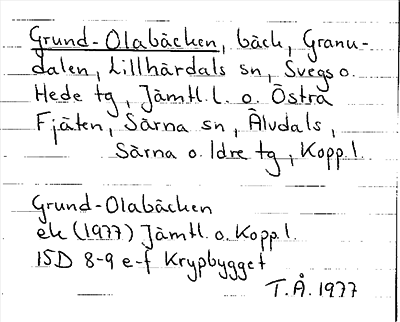 Grund-Olabäcken, bäck, Granu-
dalen, Lillhärdals sn, Svegs o.
Hede tg, Jämtl. l. o. Östra
Fjäten, Särna sn, Älvdals,
Särna o. Idre tg, Kopp. l.
Grund-Olabäcken
ek (1977) Jämtl. o. Kopp. l.
15D 8-9 e-f Krypbygget
T.Å. 1977